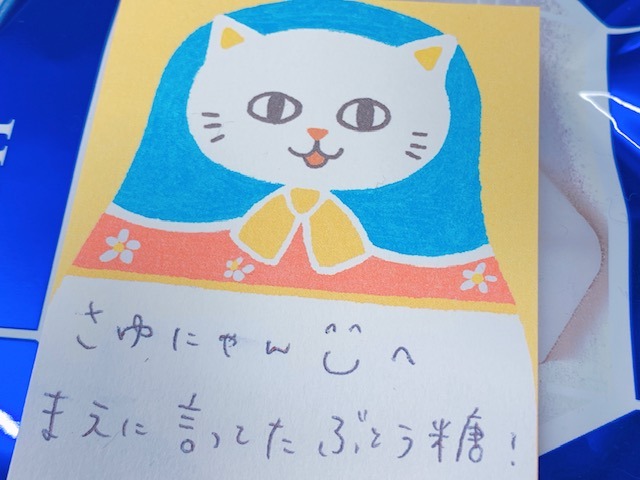 さゆにゃん へ
まえに言ってたぶどう糖!